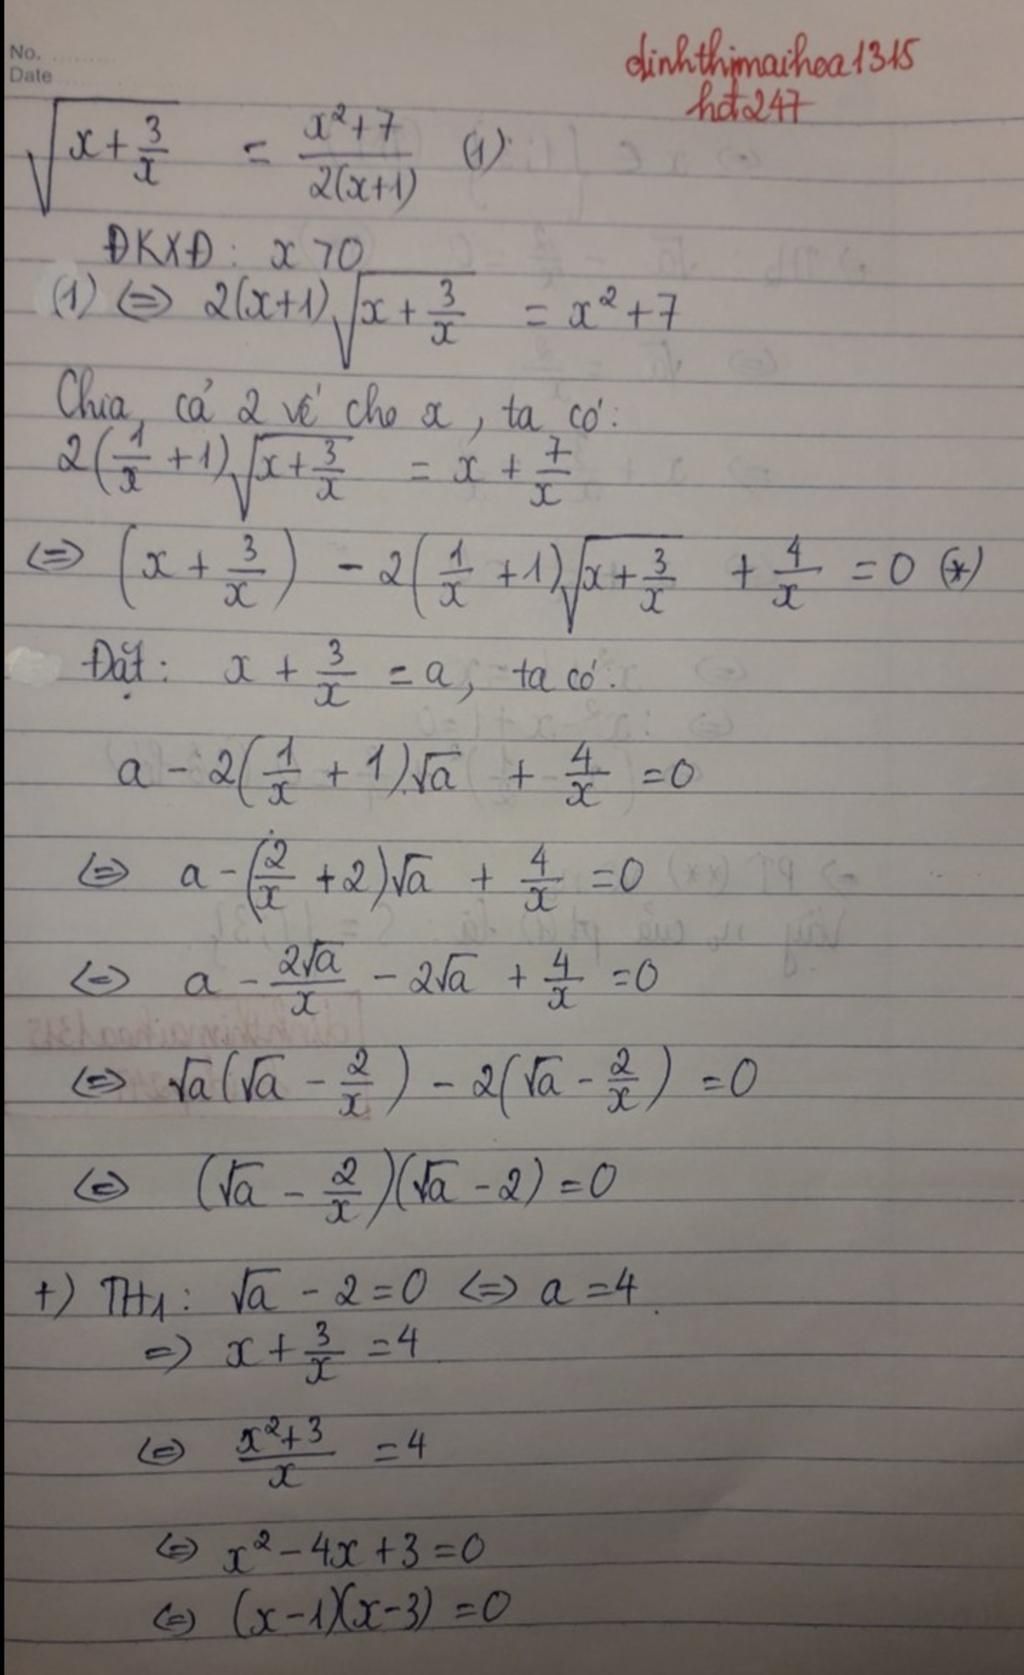 No.
Date
dinhthimaihoa1315
hd247
√(x + 3/x) = (x² + 7)/(2(x+1)) (1)
ĐKXĐ: x > 0
(1) ⇔ 2(x+1)√(x + 3/x) = x² + 7
Chia cả 2 vế cho x, ta có:
2(1/x + 1)√(x + 3/x) = x + 7/x
⇔ (x + 3/x) - 2(1/x + 1)√(x + 3/x) + 4/x = 0 (*)
Đặt: x + 3/x = a, ta có:
a - 2(1/x + 1)√a + 4/x = 0
⇔ a - (2/x + 2)√a + 4/x = 0
⇔ a - 2√a/x - 2√a + 4/x = 0
⇔ √a(√a - 2/x) - 2(√a - 2/x) = 0
⇔ (√a - 2/x)(√a - 2) = 0
+) TH1: √a - 2 = 0 ⇔ a = 4
⇒ x + 3/x = 4
⇔ (x² + 3)/x = 4
⇔ x² - 4x + 3 = 0
⇔ (x - 1)(x - 3) = 0